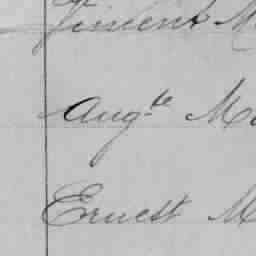 Vincent M
Aug.te Ma
Ernest M